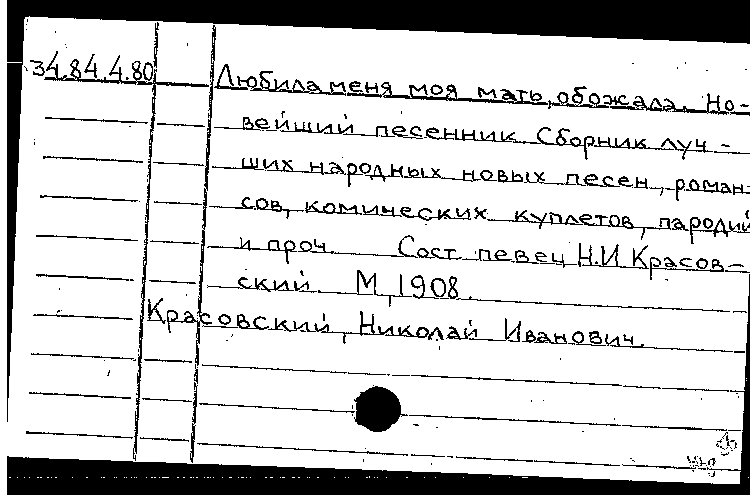 34.84.4.80 Любила меня моя мать, обожала. Но-
вейший песенник. Сборник луч-
ших народных новых песен, роман-
сов, комических куплетов, пародий
и проч. Сост. певец Н.И. Красов-
ский. М, 1908.
Красовский, Николай Иванович.